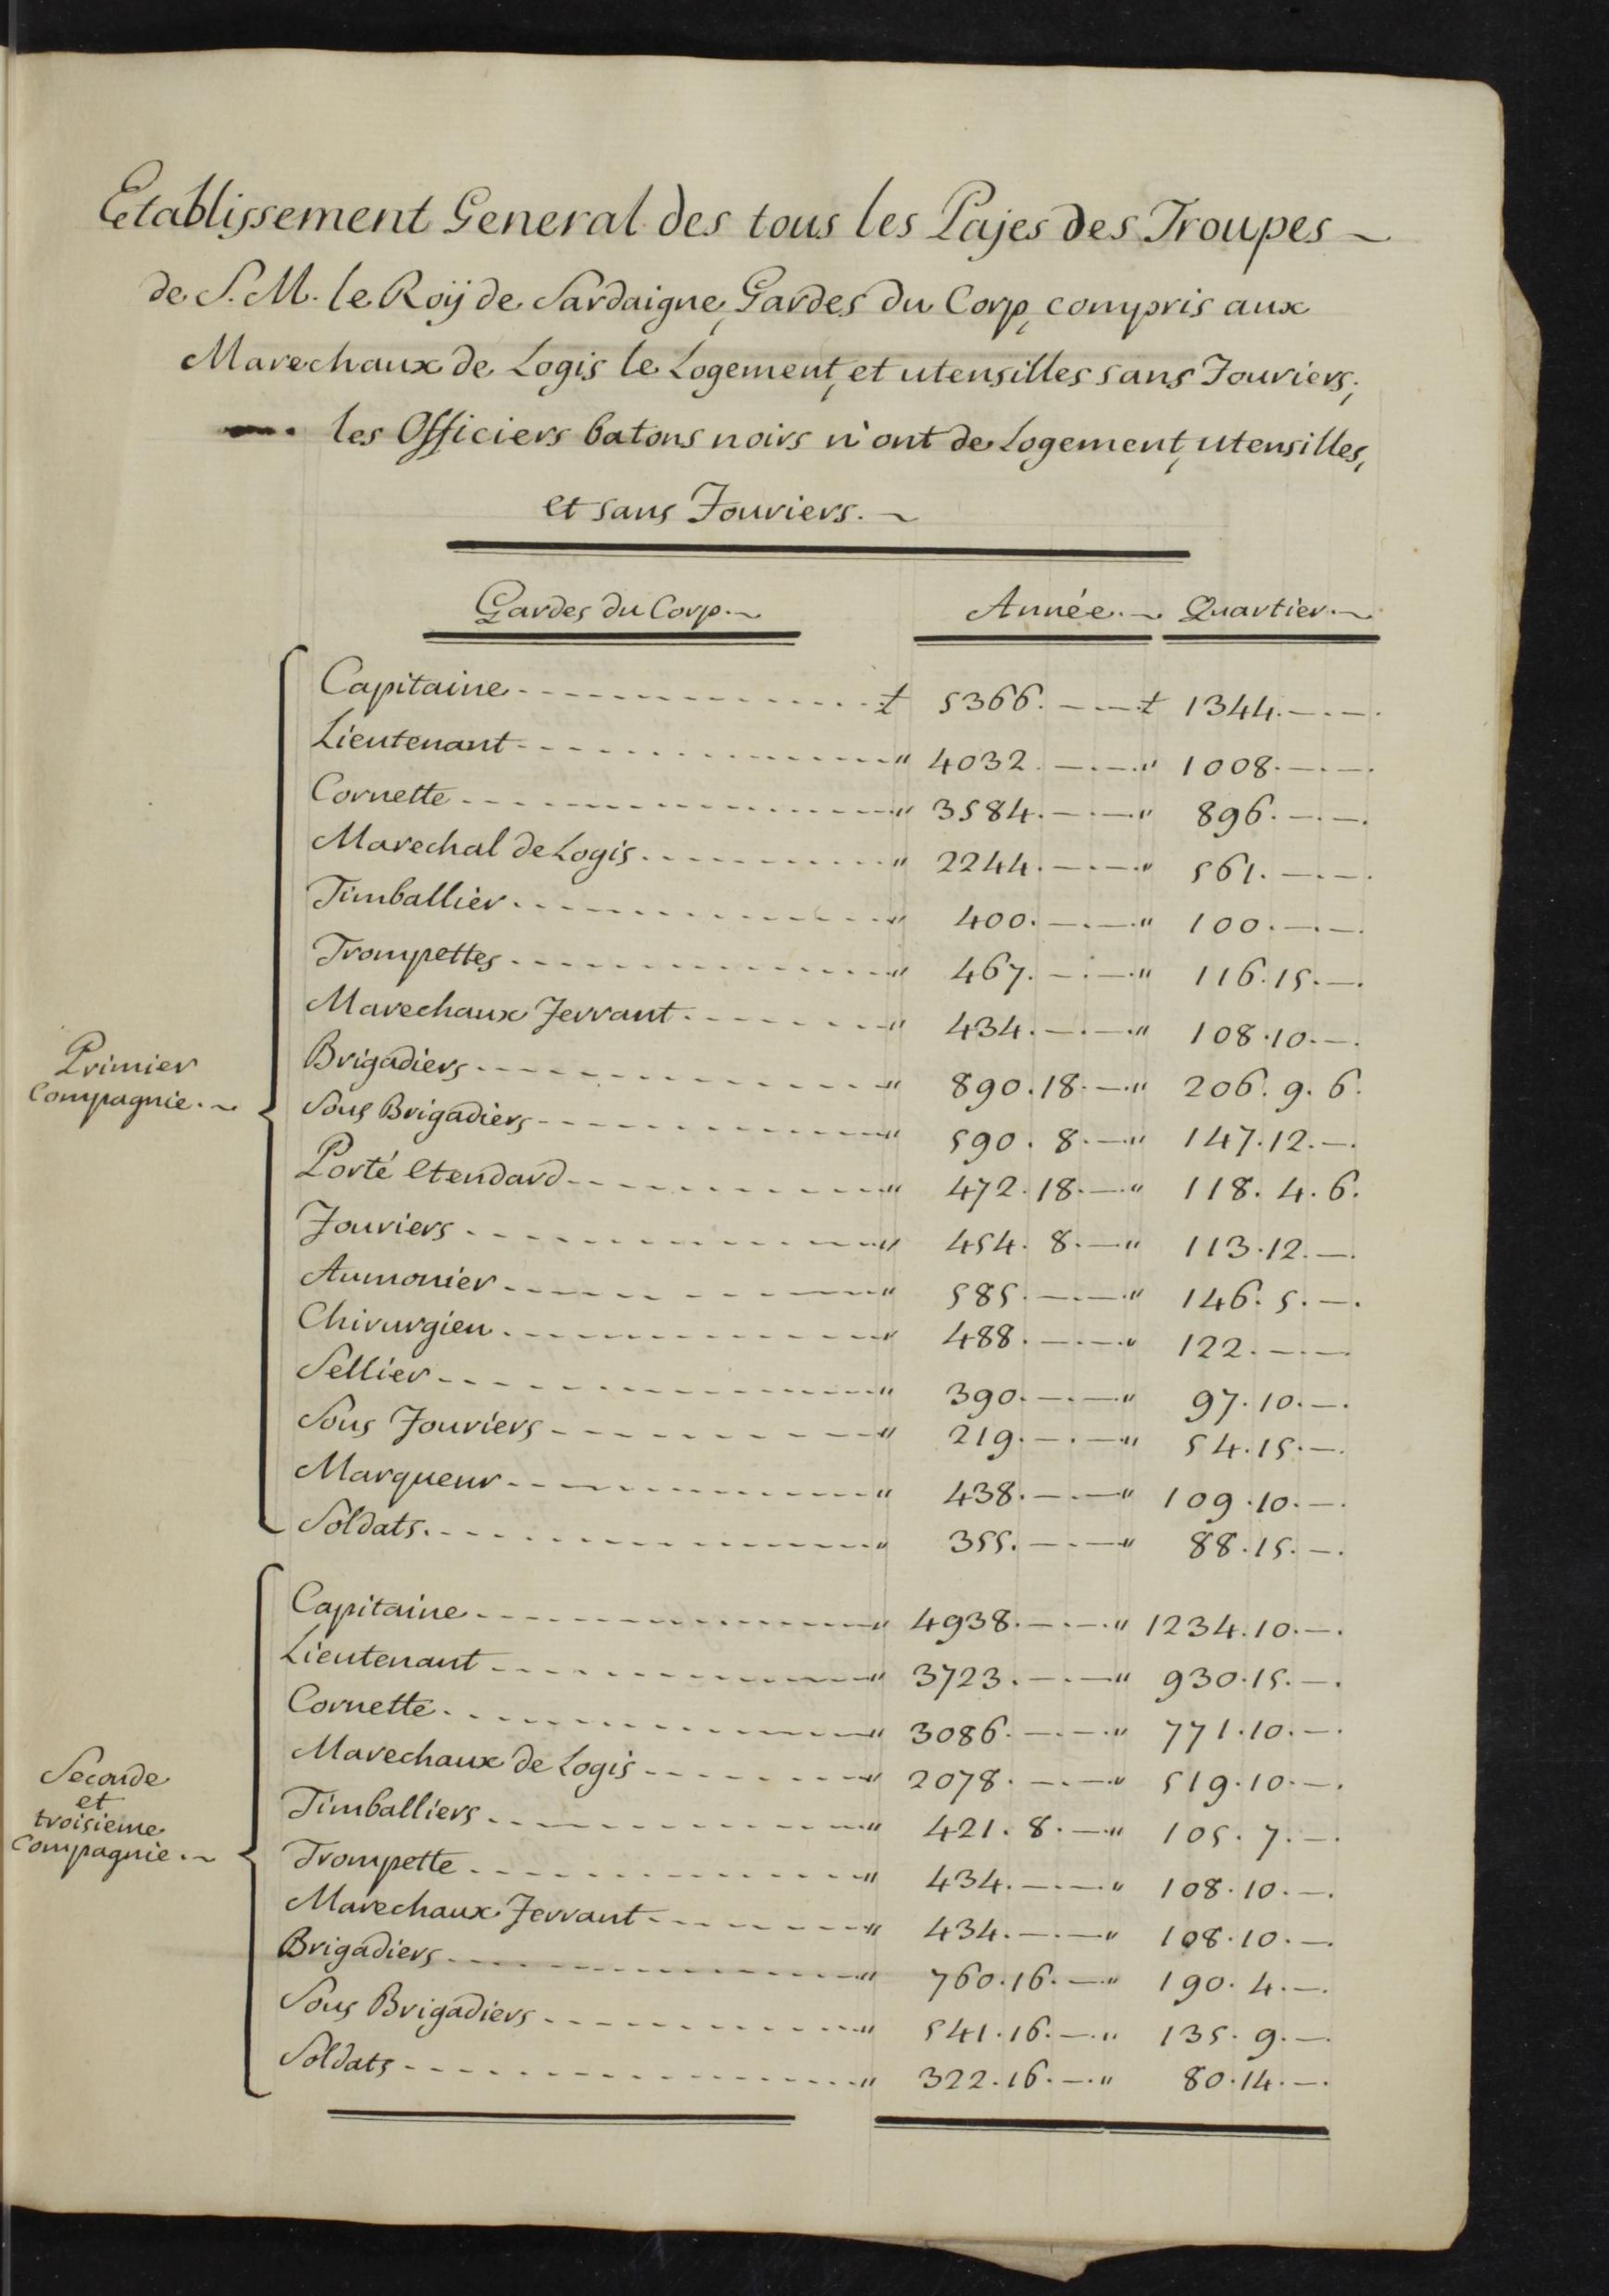 Etablissement General des tous les Pajes des Troupes
de S. M. le Roÿ de Sardaigne, Gardes du Corp, compris aux
Marechaux de Logis le Logement, et utensilles sans Fouriers;
les Officiers batons noirs n'ont de Logement, utensilles,
et sans Fouriers.
Gardes du Corp. Année. Quartier.
Primier
Compagnie.
Capitaine £ 5366. —.— £ 1344. —.—.
Lieutenant " 4032. —.— " 1008. —.—.
Cornette " 3584. —.— " 896. —.—.
Marechal de Logis " 2244. —.— " 561. —.—.
Timballier " 400. —.— " 100. —.—.
Trompettes " 467. —.— " 116. 15. —.
Marechaux Ferrant " 434. —.— " 108. 10. —.
Brigadiers " 890. 18. — " 206. 9. 6.
Sous Brigadiers " 590. 8. — " 147. 12. —.
Porté etendard " 472. 18. — " 118. 4. 6.
Fouriers " 454. 8. — " 113. 12. —.
Aumonier " 585. —.— " 146. 5. —.
Chirurgien " 488. —.— " 122. —.—
Sellier " 390. —.— " 97. 10. —.
Sous Fouriers " 219. —.— " 54. 15. —.
Marqueur " 438. —.— " 109. 10. —.
Soldats " 355. —.— " 88. 15. —.
Seconde
et
troisieme
Compagnie.
Capitaine " 4938. —.— " 1234. 10. —.
Lieutenant " 3723. —.— " 930. 15. —.
Cornette " 3086. —.— " 771. 10. —.
Marechaux de Logis " 2078. —.— " 519. 10. —.
Timballiers " 421. 8. — " 105. 7. —.
Trompette " 434. —.— " 108. 10. —.
Marechaux Ferrant " 434. —.— " 108. 10. —.
Brigadiers " 760. 16. — " 190. 4. —.
Sous Brigadiers " 541. 16. — " 135. 9. —.
Soldats " 322. 16. — " 80. 14. —.